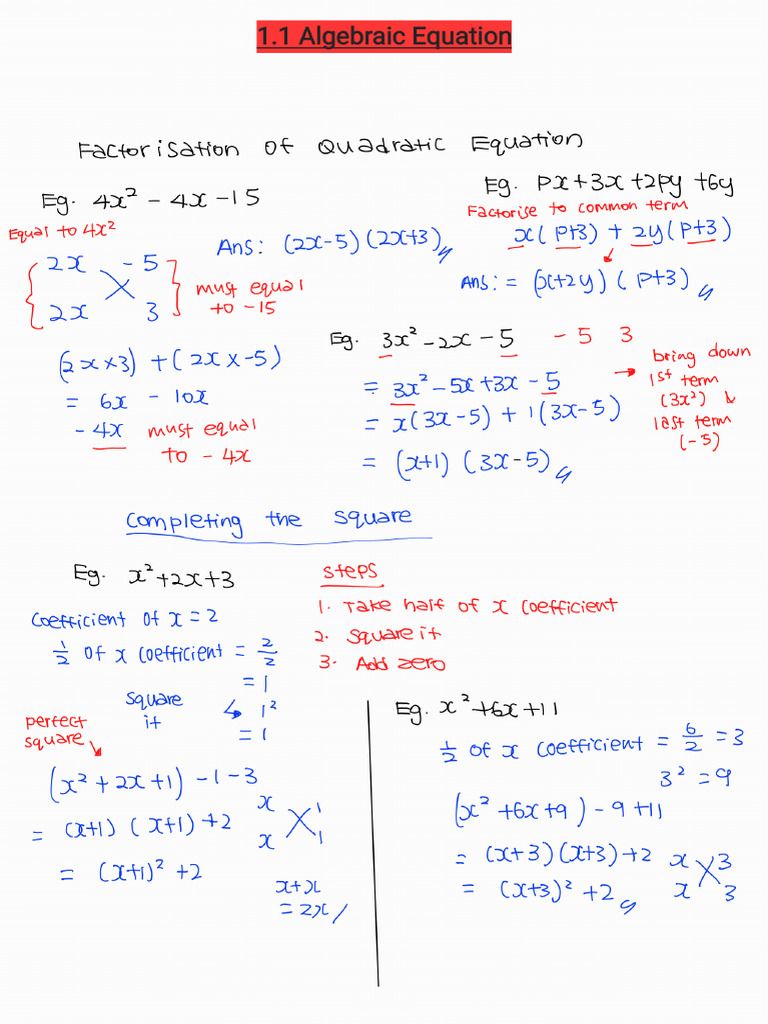 1.1 Algebraic Equation
Factorisation of Quadratic Equation
Eg. 4x² - 4x - 15
Equal to 4x²
Ans: (2x-5)(2x+3)
2x - 5
2x 3
must equal
to -15
(2x×3) + (2x×-5)
= 6x - 10x
- 4x must equal
to - 4x
Eg. px+3x+2py+6y
Factorise to common term
x(p+3) + 2y(p+3)
Ans: = (x+2y)(p+3)
Eg. 3x²-2x-5 -5 3
= 3x²-5x+3x-5
= x(3x-5)+1(3x-5)
= (x+1)(3x-5)
bring down
1st term
(3x²) &
last term
(-5)
Completing the square
Eg. x²+2x+3
coefficient of x = 2
½ of x coefficient = 2/2
= 1
square
it
1²
= 1
perfect
square
(x²+2x+1)-1-3
= (x+1)(x+1)+2
= (x+1)²+2
x 1
x 1
x+x
= 2x
steps
1. Take half of x coefficient
2. Square it
3. Add zero
Eg. x²+6x+11
½ of x coefficient = 6/2 = 3
3² = 9
(x²+6x+9)-9+11
= (x+3)(x+3)+2
= (x+3)²+2
x 3
x 3